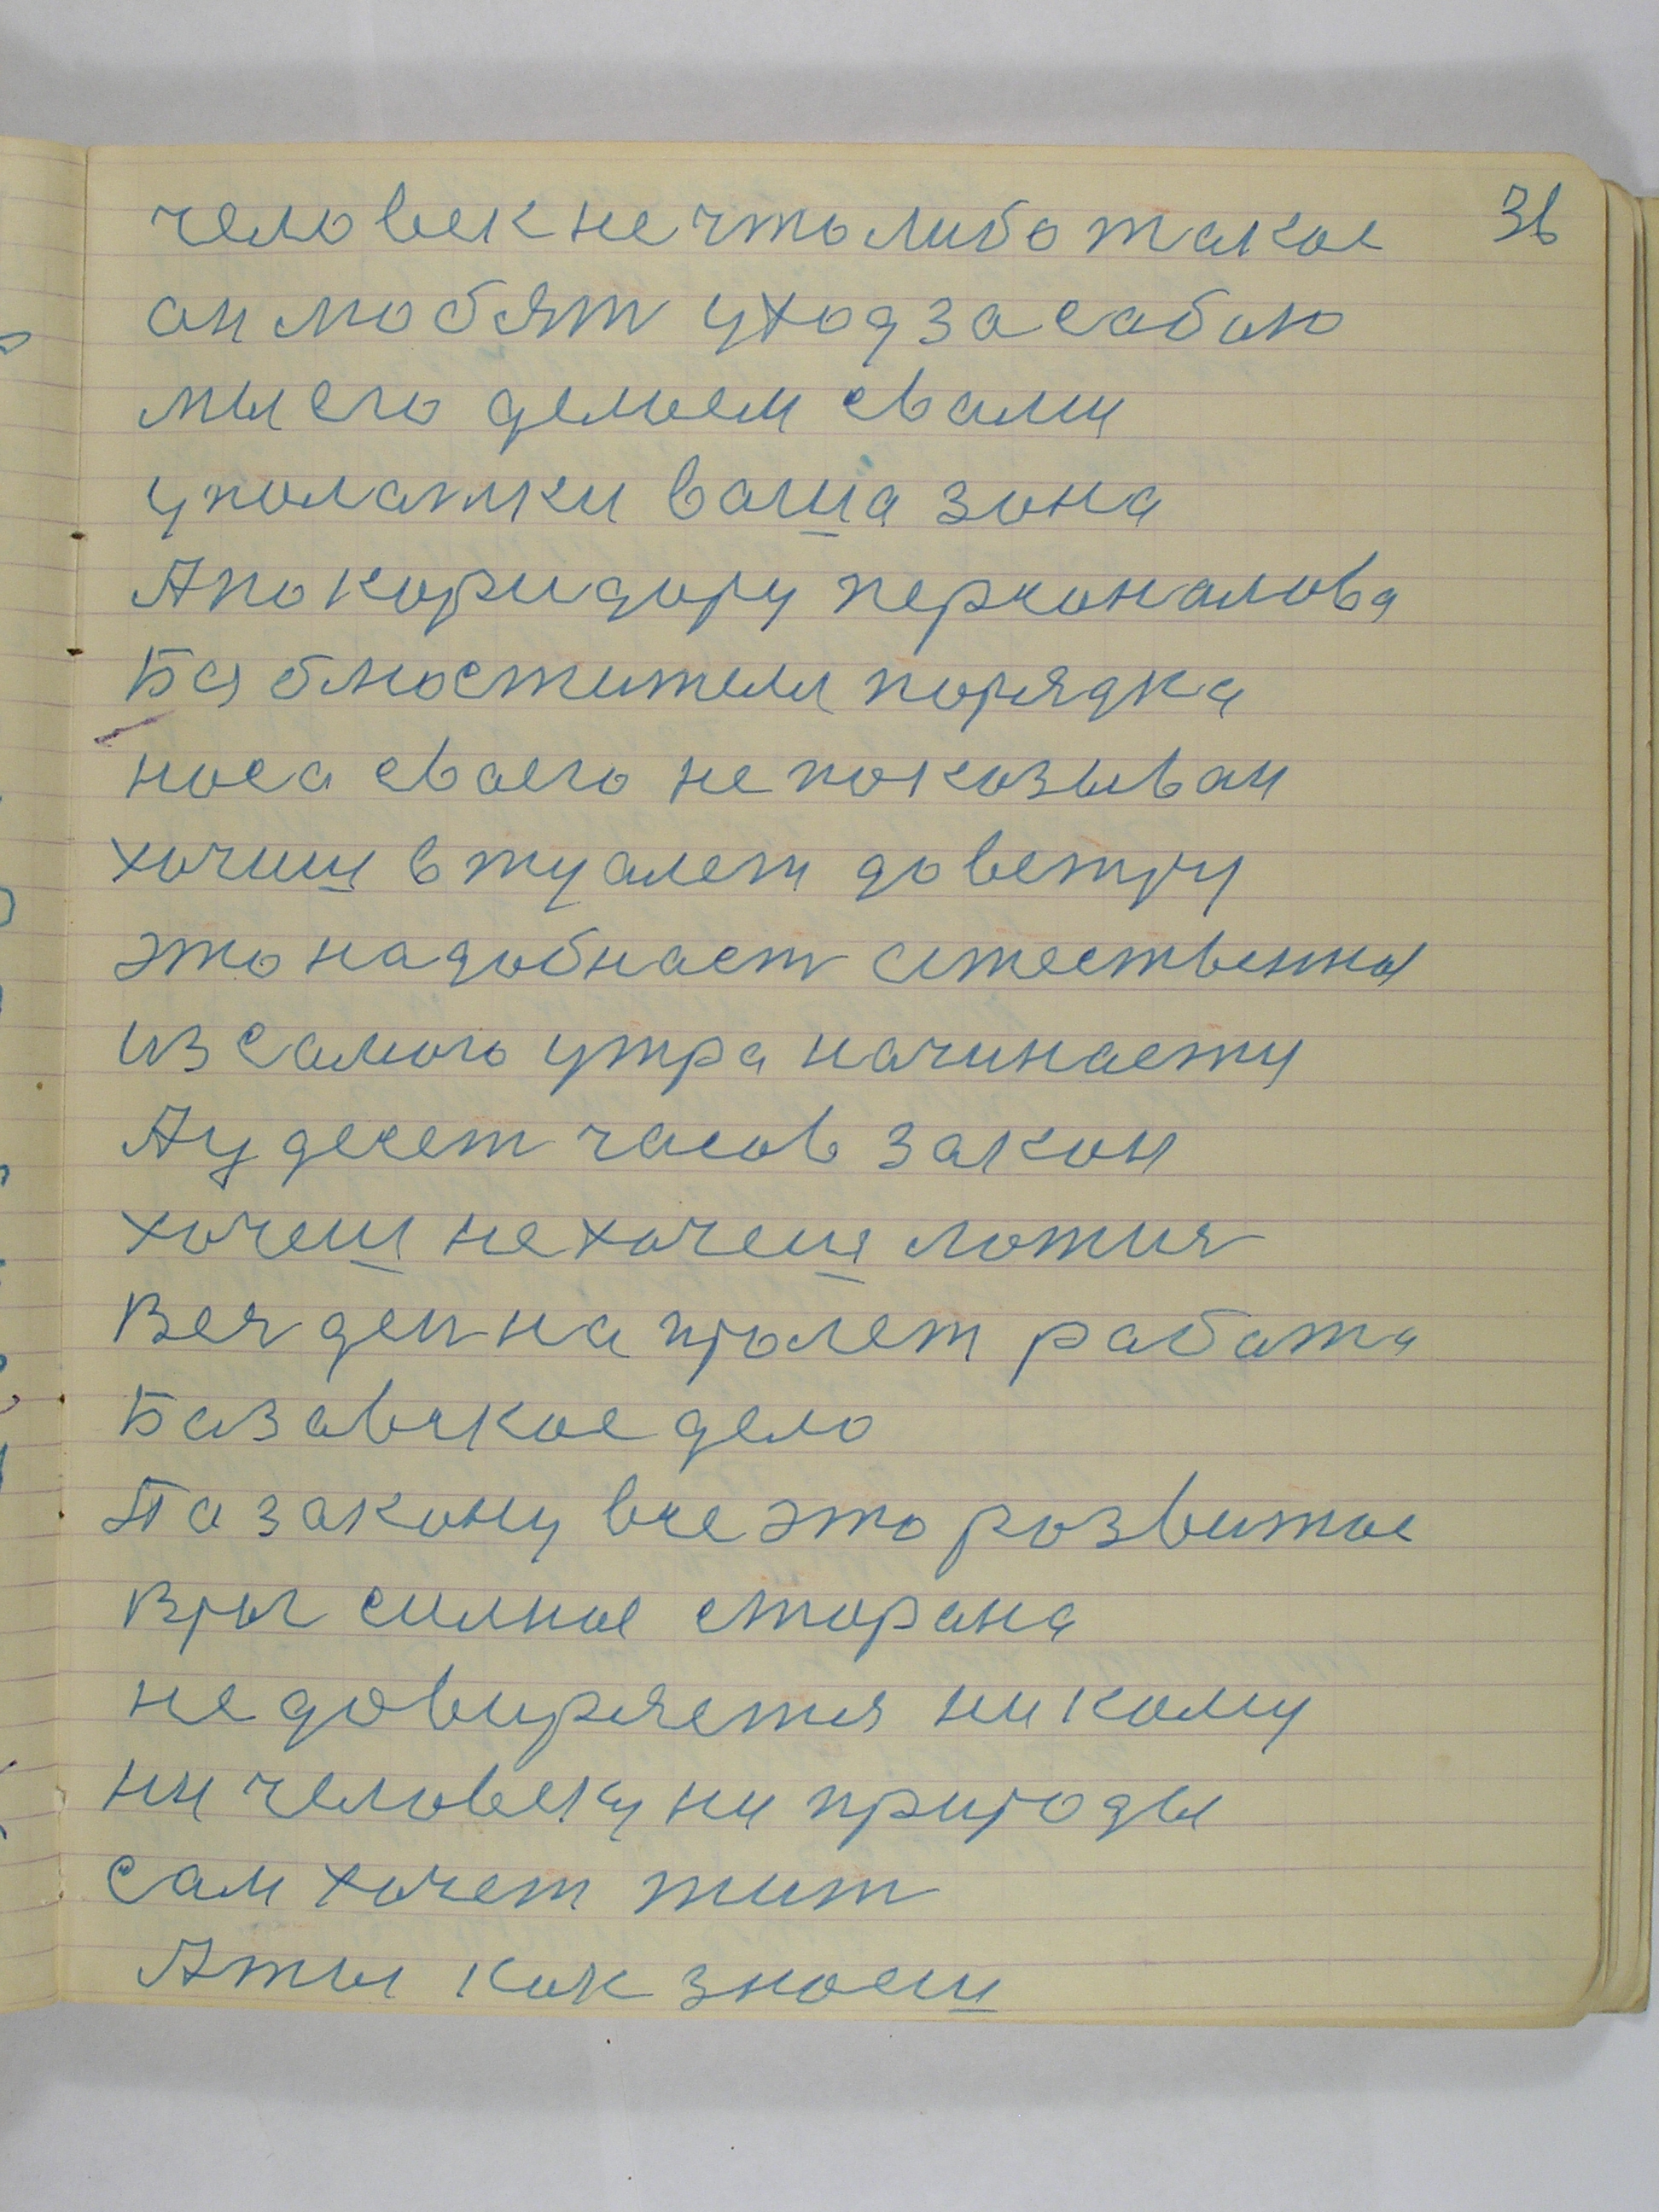 человек не что либо такое 36
ан мобят уход за сабою
мы его делоем свами
уполатки ваша зона
А по коридору персоналова
Бяблюстители порядка
носа сваего не показыван
хочиш в туалет до ветру
это надобнаст естественная
из самого утра начинаету
А у десет часов закон
хочеш не хочеш ложися
Вес ден напролет работа
Базавское дело
Па закону все это розвитое
Врог силное сторана
не довиряется никому
ни человеку ни природы
сам хочет жит
А ты как знаеш